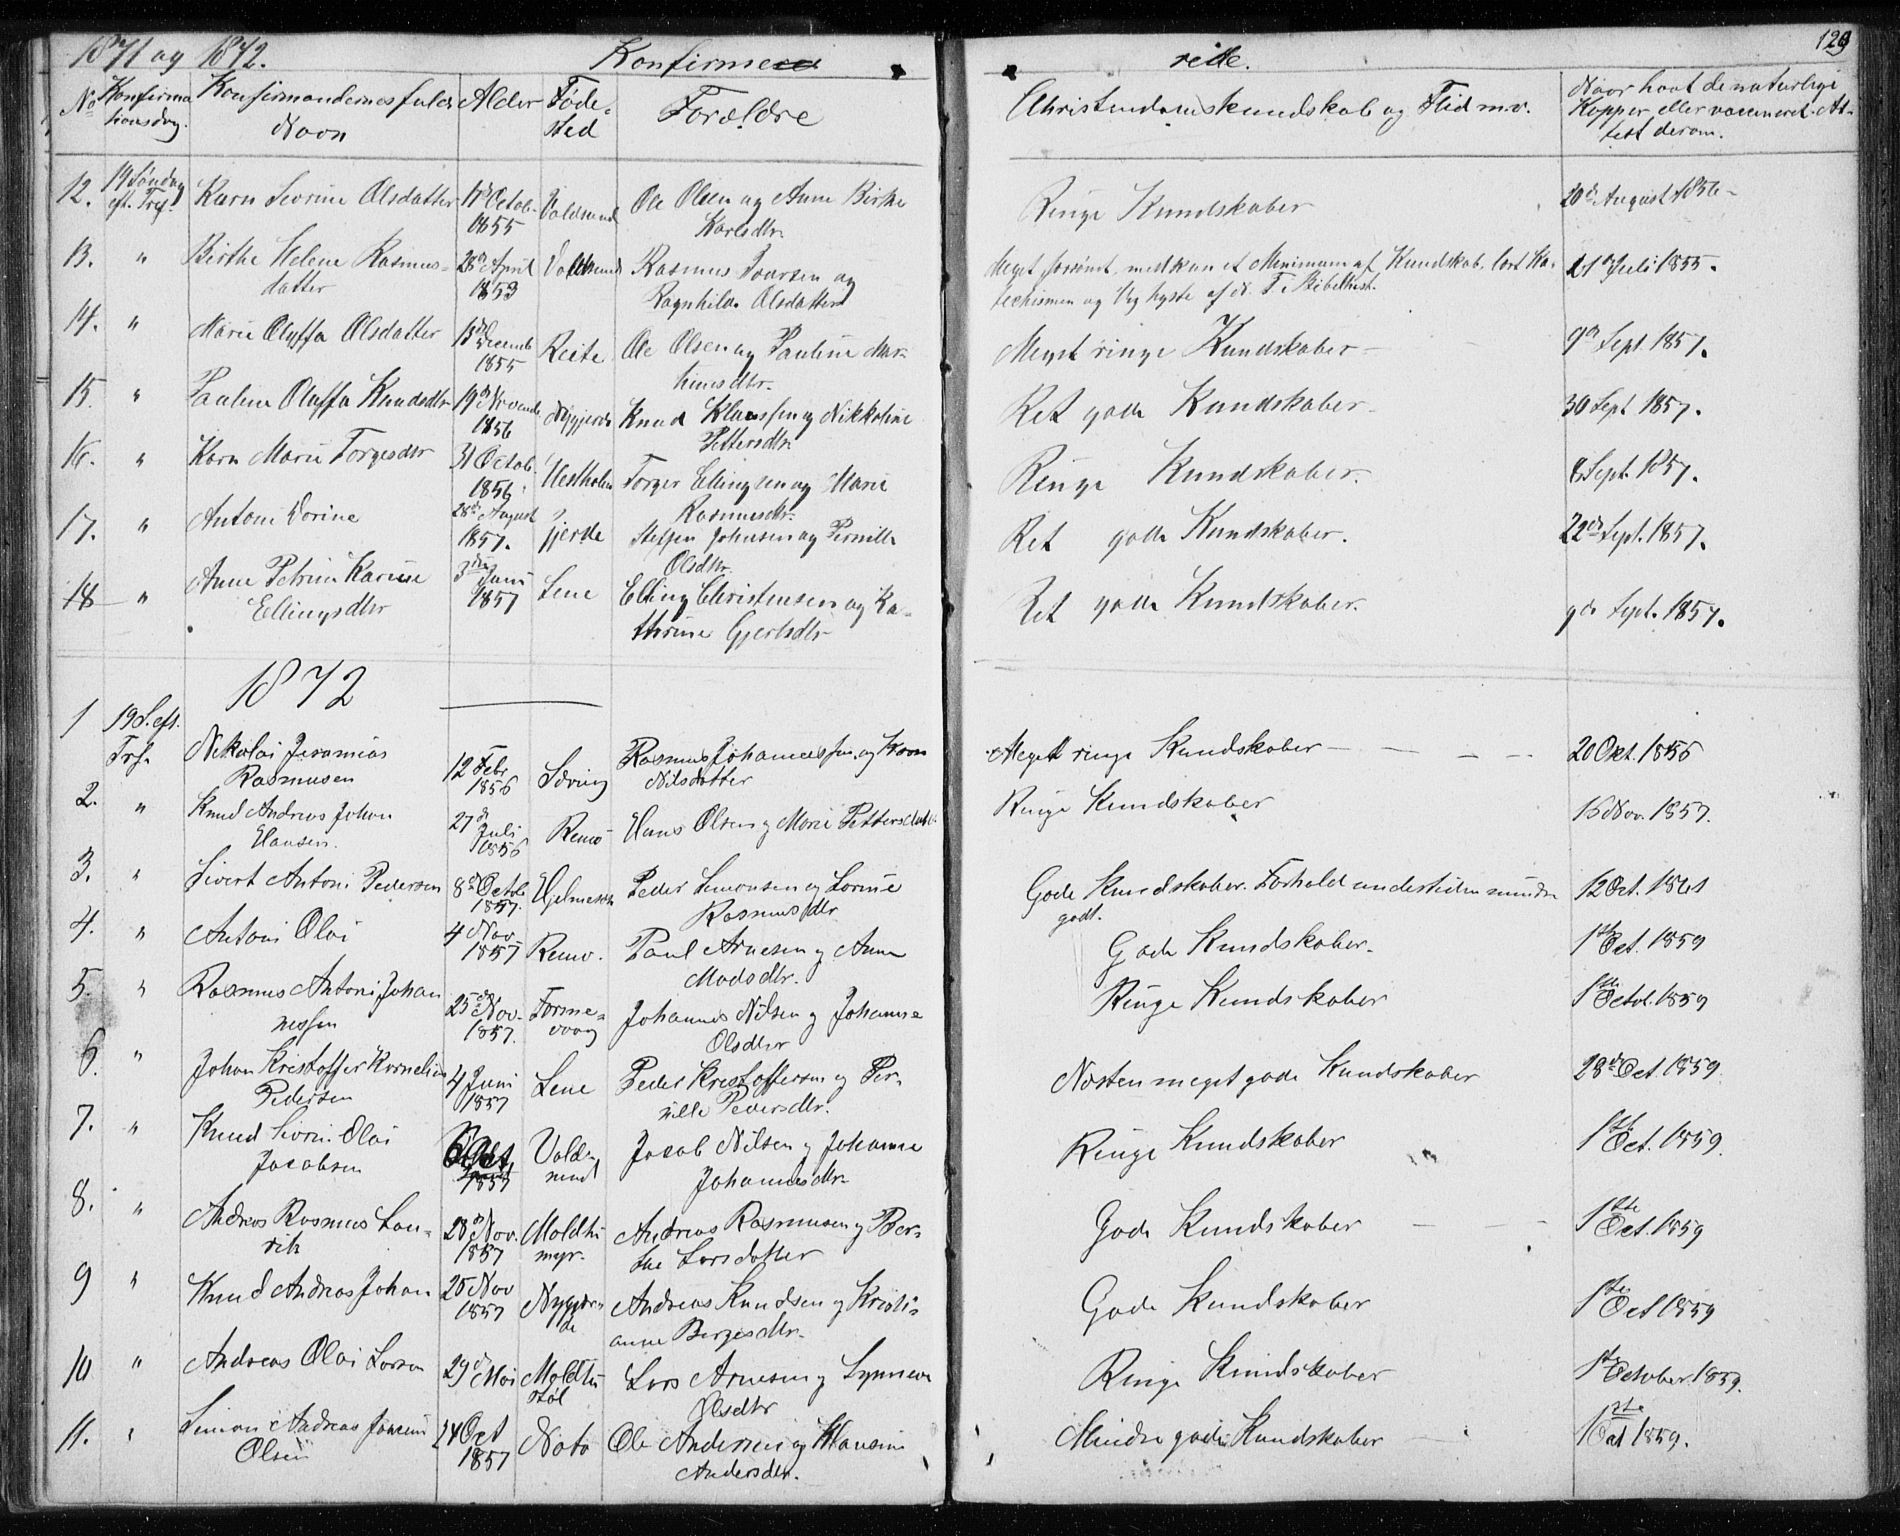 1871 og 1872. Konfirmerede. 129
No Konfirmationsdag. Konfirmandernes fulde Navn Alder Fødested Forældre Christendomskundskab og Flid m.v. Naar havt de naturlige Kopper eller vaccineret. Attest derom.
12. 19 Søndag eft. Tref. Karn Severine Olsdatter Octob. 1855 Voldsund Ole Olsen og Anne Birthe Karlsdtr. Ringe Kundskaber 20de August 1856
13. " Birthe Helene Rasmusdatter 28de April 1853 Voldsund Rasmus Ivarsen og Ragnhilda Olsdatter Meget forsømt, med kun et Minimum af Kundskab, lært Katechismen og N. T. i Bibelhist. 21de Juli 1855.
14. " Marie Oluffa Olsdatter 13de Decemb 1855 Reite Ole Olsen og Pauline Martinusdtr. Meget ringe Kundskaber 9de Sept 1857.
15. " Pauline Oluffa Knudsdtr 19de Novemb. 1856 Nygjerde Knud Klausen og Nikkoline Pettersdtr. Ret gode Kundskaber 30 Sept 1857.
16. " Karn Marie Torgersdtr 31 Octob. 1856 Hestholm Torger Ellingsen og Marie Rasmusdtr. Ringe Kundskaber. 8 Sept. 1857.
17. " Antone Dorine 28de August 1857. Gjerde Steffen Johnsen og Pernille Olsdtr. Ret gode Kundskaber. 22de Sept. 1857.
18 " Anne Petrine Karine Ellingsdtr 3die Juni 1857 Lene Elling Christensen og Kathrine Gjertsdtr Ret gode Kundskaber. 9de Sept. 1857.
1872
1 19 S. eft. Tref. Nikolai Jeramias Rasmusen 12 Febr 1856 Sæving Rasmus Johannessen og Karn Nilsdatter Meget ringe Kundskaber 20 Okt. 1856
2. " Knud Andreas Johan Hansen. 27de Juli 1856 Remø Hans Olsen og Marie Pettersdatter Ringe Kundskaber 16 Nov. 1857.
3. " Sivert Antoni Pedersen 8de Octob 1857. Hjelmeset Peder Simonsen og Lorine Rasmusdtr Gode Kundskaber. Forhold undertiden mindre godt. 12 Oct. 1861
4. " Antoni Olai 4 Nov. 1857 Remø. Paul Arnesen og Anne Madsdtr. Gode Kundskaber. 1ste Oct. 1859
5. " Rasmus Antoni Johannessen 25de Nov. 1857. Tormevaag Johannes Nilsen og Johanne Olsdtr Ringe Kundskaber 1ste Octob. 1859
6. " Johan Kristoffer Kornelius Pedersen 4 Juni 1857 Lene Peder Kristoffersen og Pernille Pedersdtr. Næsten meget gode Kundskaber 28de Oct. 1859.
7. " Knud Severin Olai Jacobsen Oct. 1857 Voldsund Jacob Nilsen og Johanne Johannesdtr Ringe Kundskaber 1ste Oct. 1859.
8. " Andreas Rasmus Laurits 28de Nov. 1857 Moldtumyr. Andreas Rasmusen og Berthe Larsdatter Gode Kundskaber 1ste Oct. 1859
9 " Knud Andreas Johan 25 Nov 1857 Nygjerde Andreas Knudsen og Kristianne Børgesdtr. Gode Kundskaber 1ste Oct 1859
10 " Andreas Olai Larsen 29de Mai Moldtustøl Lars Arnesen og Synneve Olsdtr Ringe Kundskaber 1ste October 1859.
11. " Simon Andreas Olsen 24 Oct 1857 Notø Ole Andersen og Hansine Andersdtr. Mindre gode Kundskaber 1ste Oct 1859.